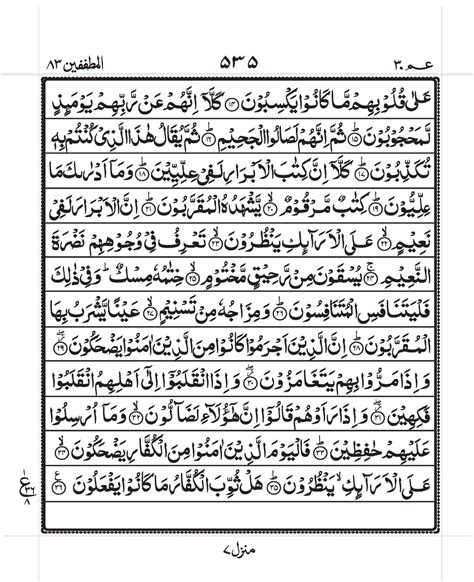 عـم ٣٠ ٥٣٥ المطففين ٨٣
عَلٰى قُلُوْبِهِمْ مَّا كَانُوْا يَكْسِبُوْنَ ﴿١٤﴾ كَلَّاۤ اِنَّهُمْ عَنْ رَّبِّهِمْ يَوْمَئِذٍ
لَّمَحْجُوْبُوْنَ ﴿١٥﴾ ثُمَّ اِنَّهُمْ لَصَالُوا الْجَحِيْمِ ﴿١٦﴾ ثُمَّ يُقَالُ هٰذَا الَّذِيْ كُنْتُمْ بِهٖ
تُكَذِّبُوْنَ ﴿١٧﴾ كَلَّاۤ اِنَّ كِتٰبَ الْاَبْرَارِ لَفِيْ عِلِّيِّيْنَ ﴿١٨﴾ وَمَاۤ اَدْرٰىكَ مَا
عِلِّيُّوْنَ ﴿١٩﴾ كِتٰبٌ مَّرْقُوْمٌ ﴿٢٠﴾ يَّشْهَدُهُ الْمُقَرَّبُوْنَ ﴿٢١﴾ اِنَّ الْاَبْرَارَ لَفِيْ
نَعِيْمٍ ﴿٢٢﴾ عَلَى الْاَرَآئِكِ يَنْظُرُوْنَ ﴿٢٣﴾ تَعْرِفُ فِيْ وُجُوْهِهِمْ نَضْرَةَ
النَّعِيْمِ ﴿٢٤﴾ يُسْقَوْنَ مِنْ رَّحِيْقٍ مَّخْتُوْمٍ ﴿٢٥﴾ خِتٰمُهٗ مِسْكٌ ؕ وَفِيْ ذٰلِكَ
فَلْيَتَنَافَسِ الْمُتَنَافِسُوْنَ ﴿٢٦﴾ وَمِزَاجُهٗ مِنْ تَسْنِيْمٍ ﴿٢٧﴾ عَيْنًا يَّشْرَبُ بِهَا
الْمُقَرَّبُوْنَ ﴿٢٨﴾ اِنَّ الَّذِيْنَ اَجْرَمُوْا كَانُوْا مِنَ الَّذِيْنَ اٰمَنُوْا يَضْحَكُوْنَ ﴿٢٩﴾
وَاِذَا مَرُّوْا بِهِمْ يَتَغَامَزُوْنَ ﴿٣٠﴾ وَاِذَا انْقَلَبُوْۤا اِلٰٓى اَهْلِهِمُ انْقَلَبُوْا
فَكِهِيْنَ ﴿٣١﴾ وَاِذَا رَاَوْهُمْ قَالُوْۤا اِنَّ هٰٓؤُلَآءِ لَضَآلُّوْنَ ﴿٣٢﴾ وَمَاۤ اُرْسِلُوْا
عَلَيْهِمْ حٰفِظِيْنَ ﴿٣٣﴾ فَالْيَوْمَ الَّذِيْنَ اٰمَنُوْا مِنَ الْكُفَّارِ يَضْحَكُوْنَ ﴿٣٤﴾
عَلَى الْاَرَآئِكِ ۙ يَنْظُرُوْنَ ﴿٣٥﴾ هَلْ ثُوِّبَ الْكُفَّارُ مَا كَانُوْا يَفْعَلُوْنَ ﴿٣٦﴾
منزل ٧